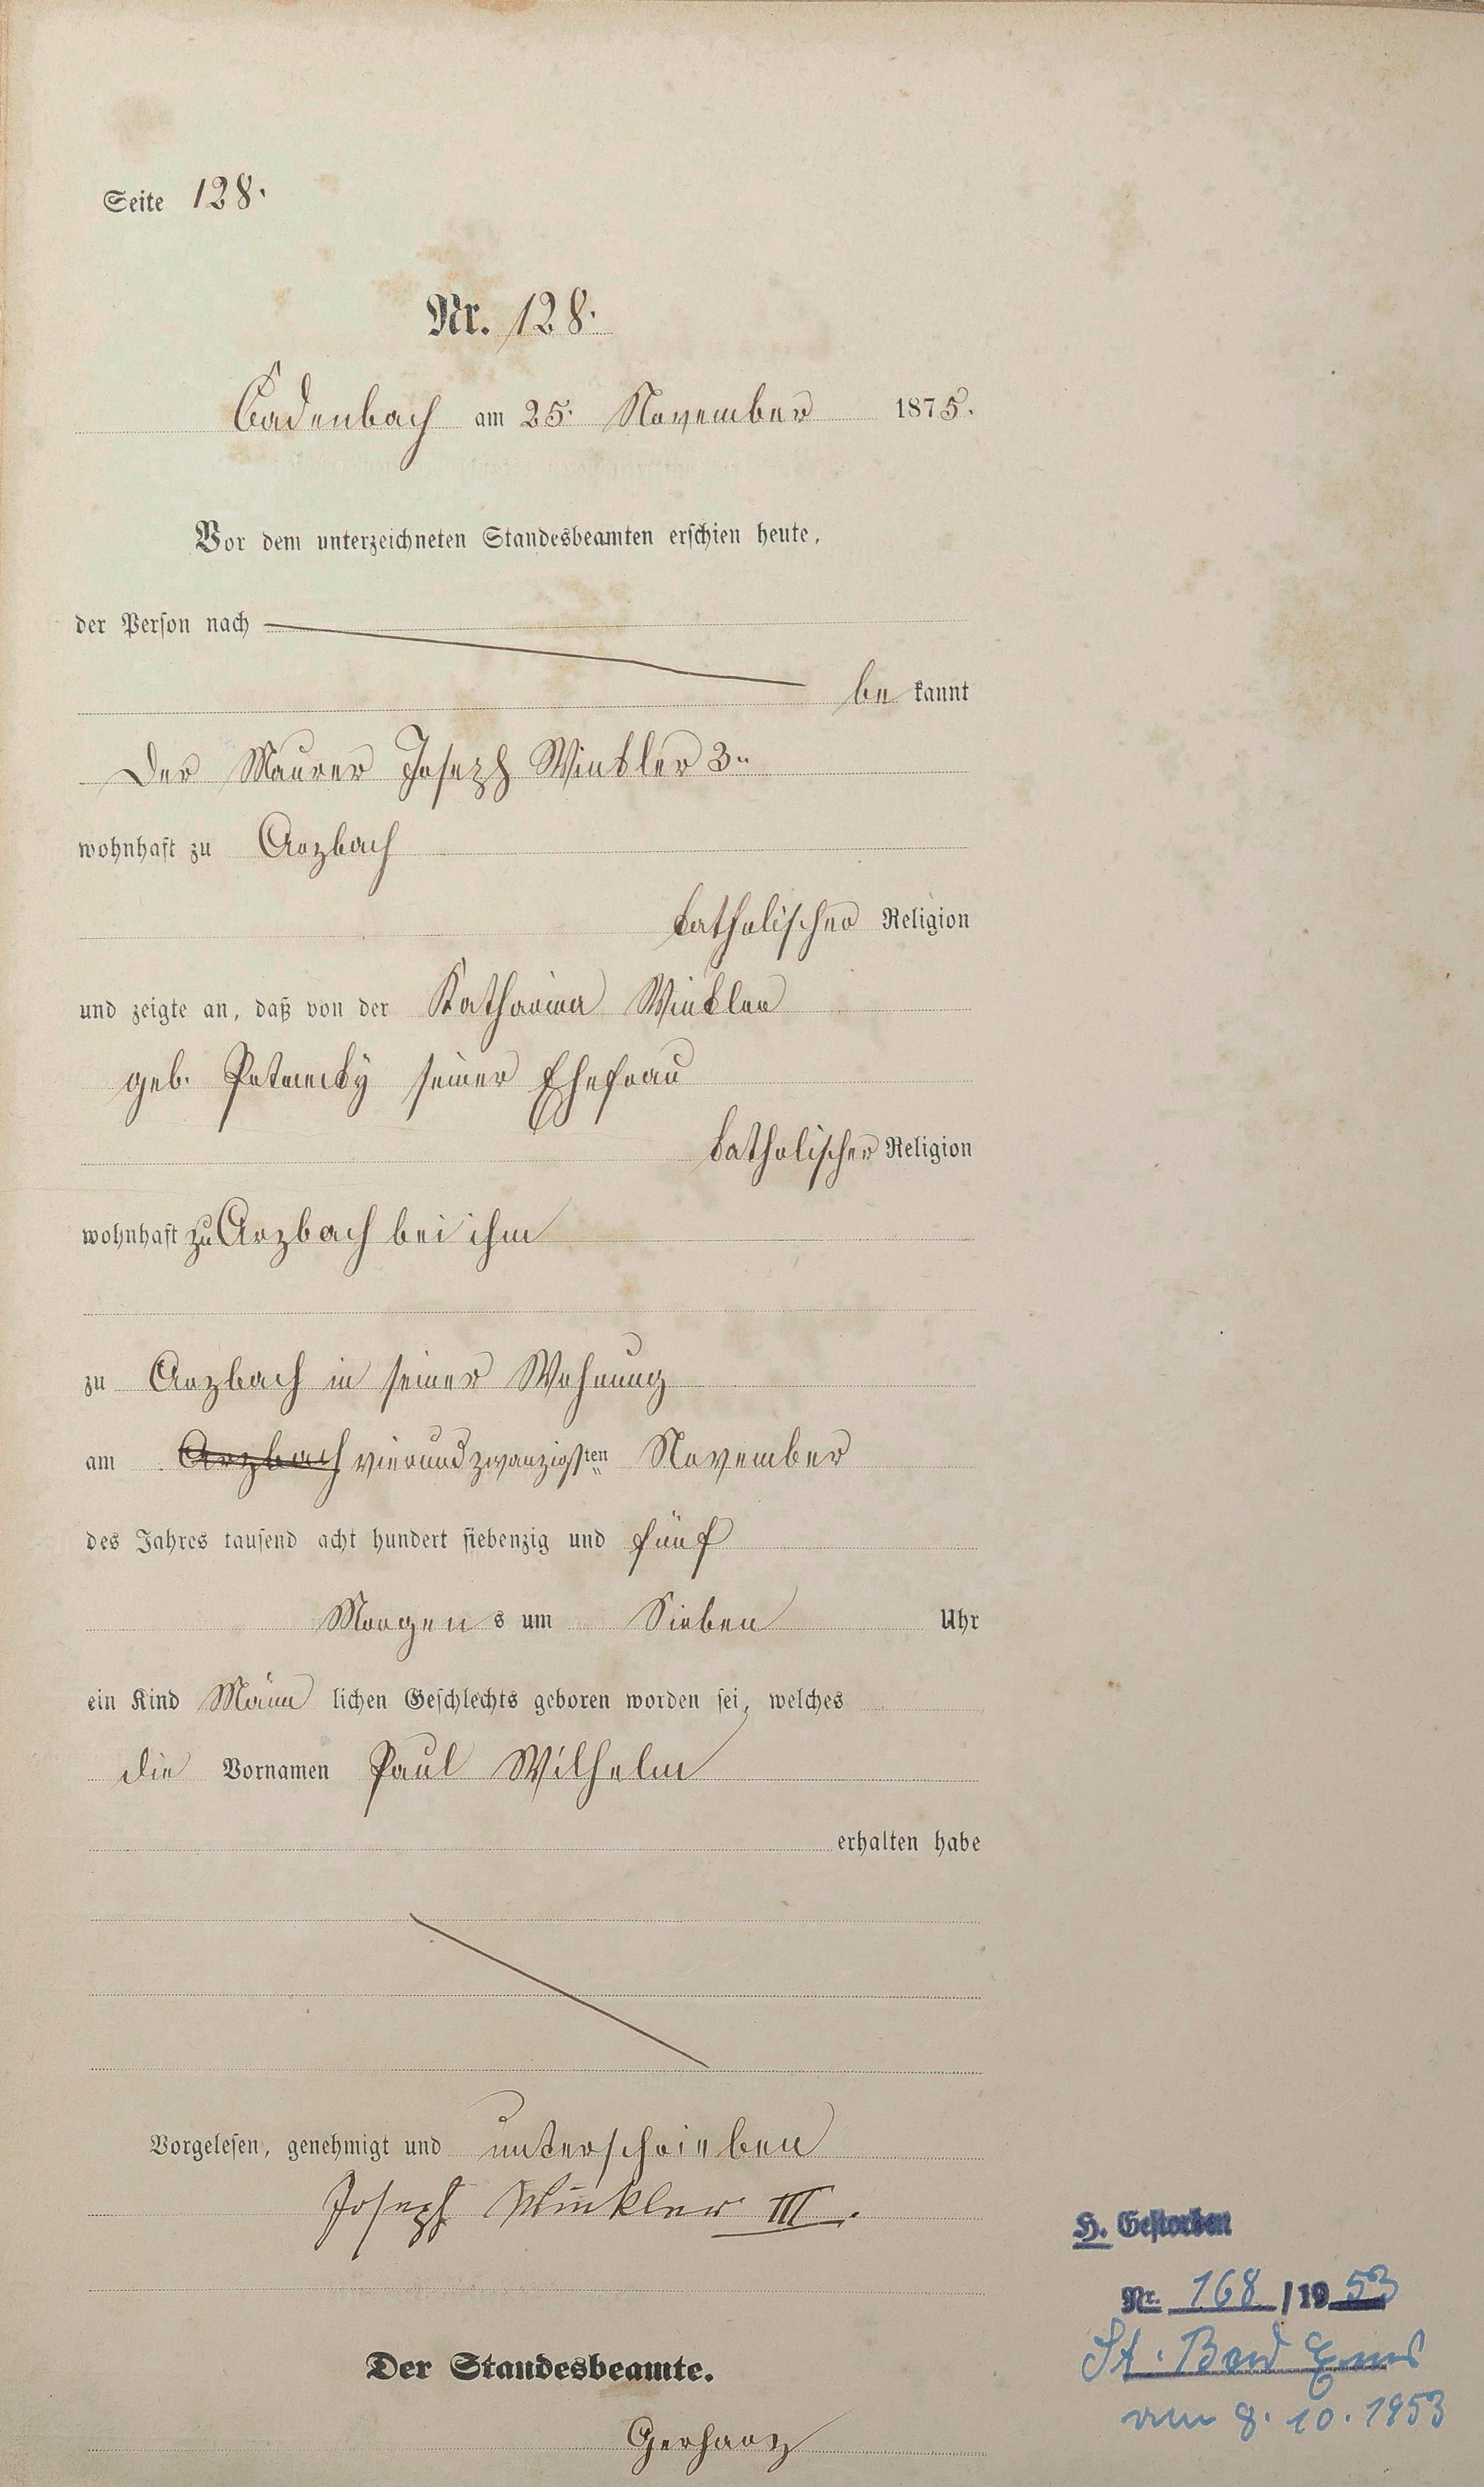 Seite 128.
Nr. 128.
Cadenbach am 25. November 1875.
Vor dem unterzeichneten Standesbeamten erschien heute,
der Person nach
be kannt
Der Maurer Joseph Winkler 3.
wohnhaft zu Arzbach
katholischer Religion
und zeigte an, daß von der Katharina Winkler
geb. seiner Ehefrau
katholischer Religion
wohnhaft zu Arzbach bei ihm
zu Arzbach in seiner Wohnung
am Arzbach vierundzwanzigsten November
des Jahres tausend acht hundert siebenzig und fünf
Morgen s um Sieben Uhr
ein Kind Männ lichen Geschlechts geboren worden sei, welches
die Vornamen Paul Wilhelm
erhalten habe
Vorgelesen, genehmigt und unterschrieben
Joseph Winkler III.
Der Standesbeamte.
Gerharz
H. Gestorben
Nr. 168 / 19 53
St. Bad Ems
vom 8. 10. 1953